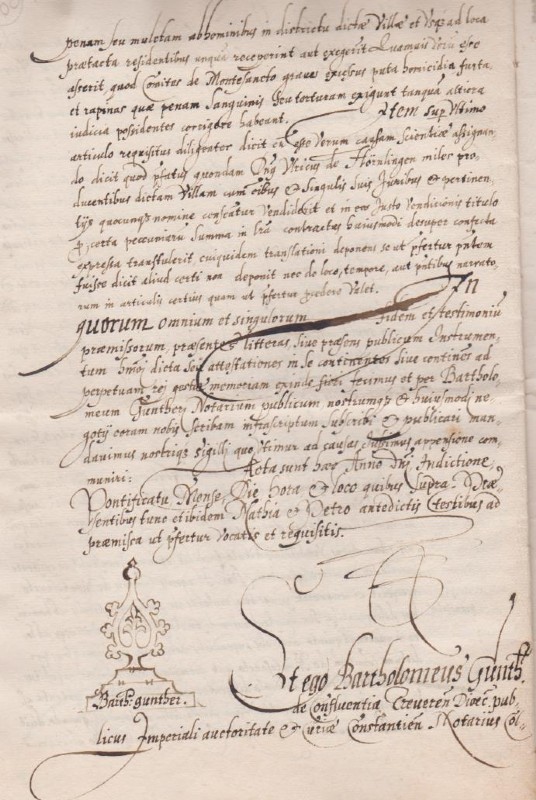 penam seu mulctam ab hominibus in districtu dictæ Villæ et usq ad loca
prætacta residentibus unqua receperint aut exegerit Quamuis Veru esse
asserit, quod Comites de Montesancto graues excessus puta homicidia furta
et rapinas quæ penam Sanguinis seu torturam exigunt tanqua altiora
iudicia possidentes corrigere habeant. Item Sup Ultimo
articulo requisitus diligenter dicit eu esse Verum causam scientiæ assignan:
do dicit quod pfatus quondam Dns Ulricus de Hörnlingen miles pro:
ducentibus dictam Villam cum oibus & singulis suis Juribus & pertinen:
tijs quocunq nomine censeatur Vendiderit et in eos Justo Venditionis titulo
p certa pecuniaru summa in lra contractus huiusmodi desuper confecta
expressa transtulerit cuiquidem translationi deponens se ut pfertur pntem
fuisse dicit aliud certi non deponit nec de loco, tempore, aut pntibus narrato:
rum in articulis certius quam ut pfertur Valet. In
quorum omnium et singulorum fidem et testimoniu
præmissorum, præsentes litteras, siue præsens publicum Instrumen:
tum hmoi dicta seu attestationes in se continentes siue continens ad
perpetuam rei gestæ memoriam exinde fieri fecimus et per Bartholo
meum Gunther Notarium publicum nostrumq & huiusmodi ne:
gotij coram nobis Scribam infrascriptum Subscribi & publicari man:
dauimus nostriq sigilli quo utimur ad causas iussimus appensione com,
muniri: Acta sunt hæc Anno Dni Indictione,
Pontificatu Mense, Die hora & loco quibus Supra. Præs
Ventibus tunc et ibidem Mathia & Petro antedictis testibus ad
præmissa ut pfertur Vocatis et requisitis.
Barth: gunther.
Et ego Bartholomeus Gunth
de Confluentia Treueren Dioec pub
licus Imperiali auctoritate & Curiæ Constantien Notarius Col-